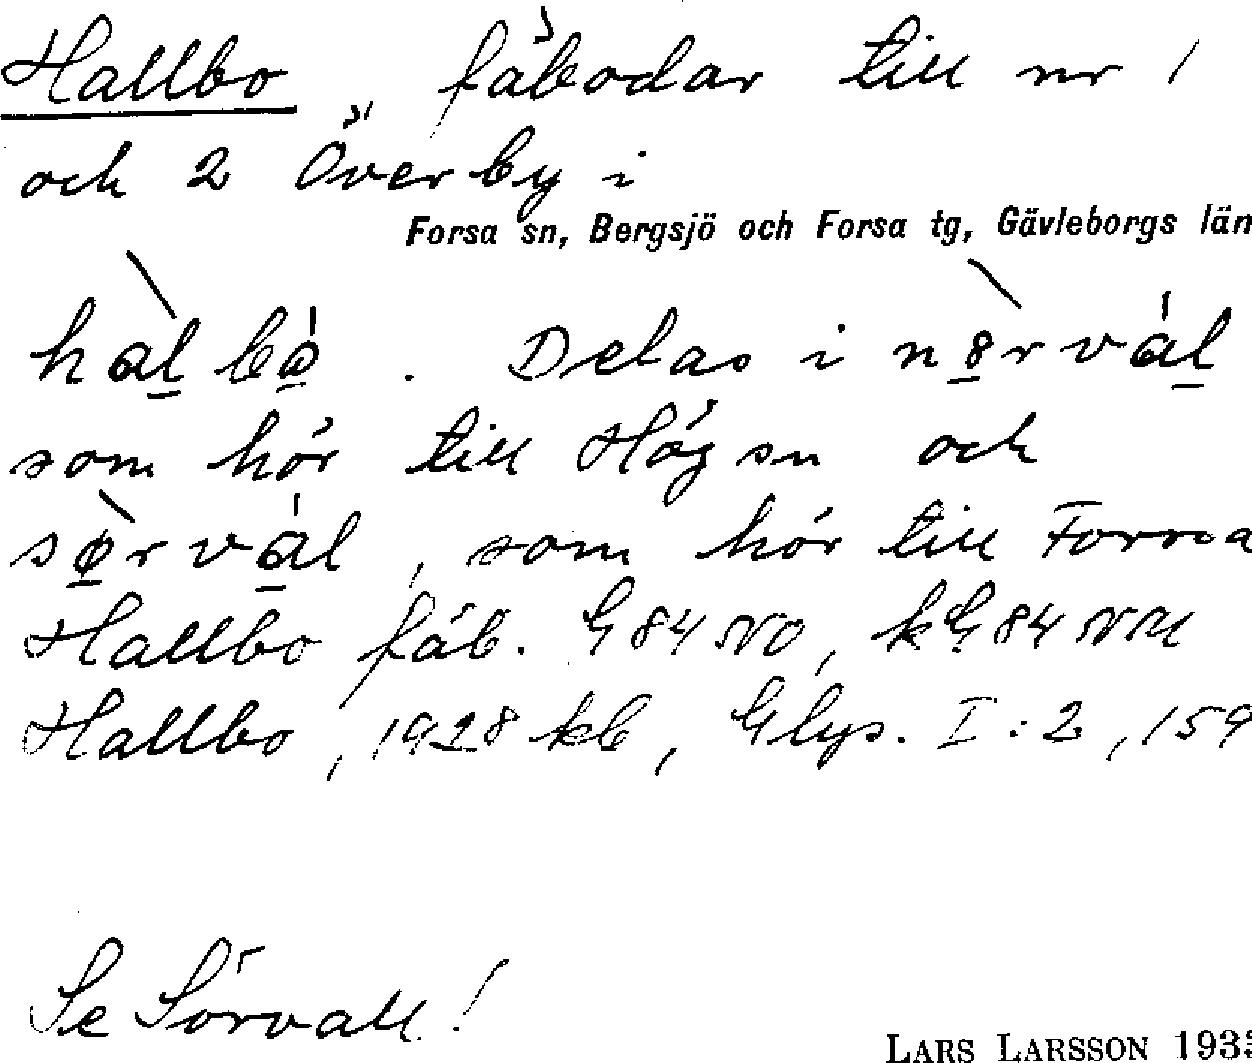 Hallbo, fäbodar till nr 1
och 2 Överby i
Forsa sn, Bergsjö och Forsa tg, Gävleborgs län
hàl bó . Delas i nørvál
som hör till Hög sn och
sørvál, som hör till Forsa
Hallbo fäb. G 84 NO, kG 84 NV
Hallbo, 1928 kb, Glys. I:2, 159
Se Sörvall!
LARS LARSSON 193